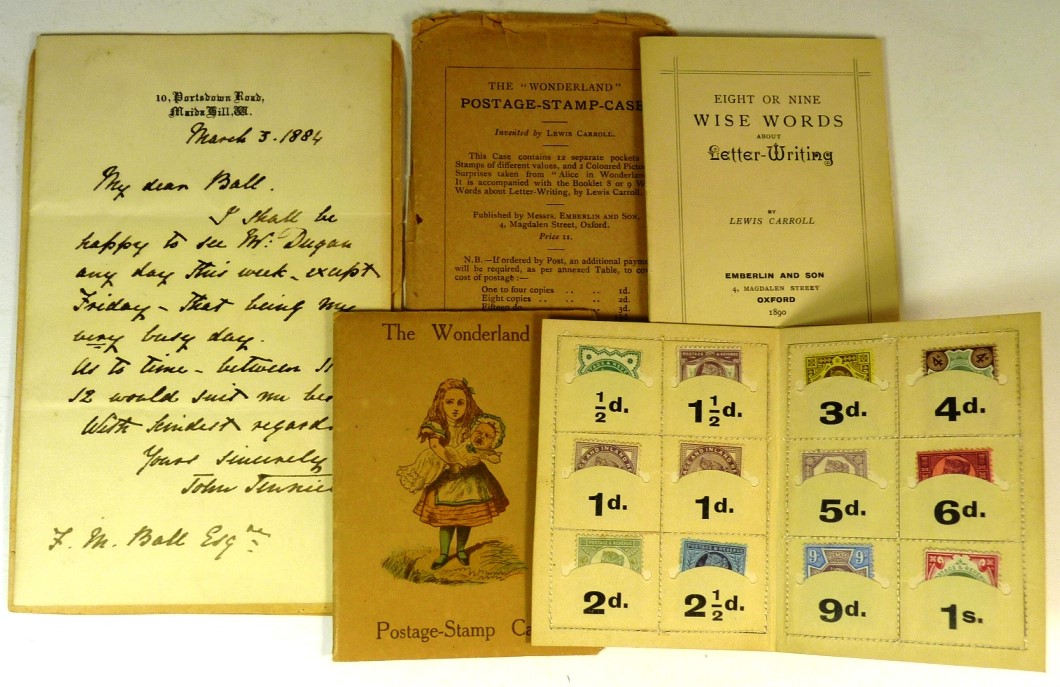 10, Portsdown Road,
Maida Hill. W.
March 3. 1884
My dear Ball.
I shall be
happy to see Mr. Dugan
any day this week - except
Friday - that being my
very busy day.
As to time - between 11
12 would suit me
With kindest regards
Yours sincerely
John Tennie
F. M. Ball Esqre
THE "WONDERLAND"
POSTAGE-STAMP-CASE
Invented by LEWIS CARROLL.
This Case contains 12 separate pockets
Stamps of different values, and 2 Coloured
Surprises taken from "Alice in
It is accompanied with the Booklet 8 or 9
Words about Letter-Writing, by Lewis Carroll.
Published by Messrs. EMBERLIN AND SON,
4, Magdalen Street, Oxford.
Price 1s.
N.B.—If ordered by Post, an additional
will be required, as per annexed Table, to
cost of postage :—
One to four copies .. .. 1d.
Eight copies .. .. .. 2d.
Fifteen do. 3d.
EIGHT OR NINE
WISE WORDS
ABOUT
Letter-Writing
BY
LEWIS CARROLL
EMBERLIN AND SON
4, MAGDALEN STREET
OXFORD
1890
The Wonderland
Postage-Stamp
½d. 1½d. 3d. 4d.
1d. 1d. 5d. 6d.
2d. 2½d. 9d. 1s.